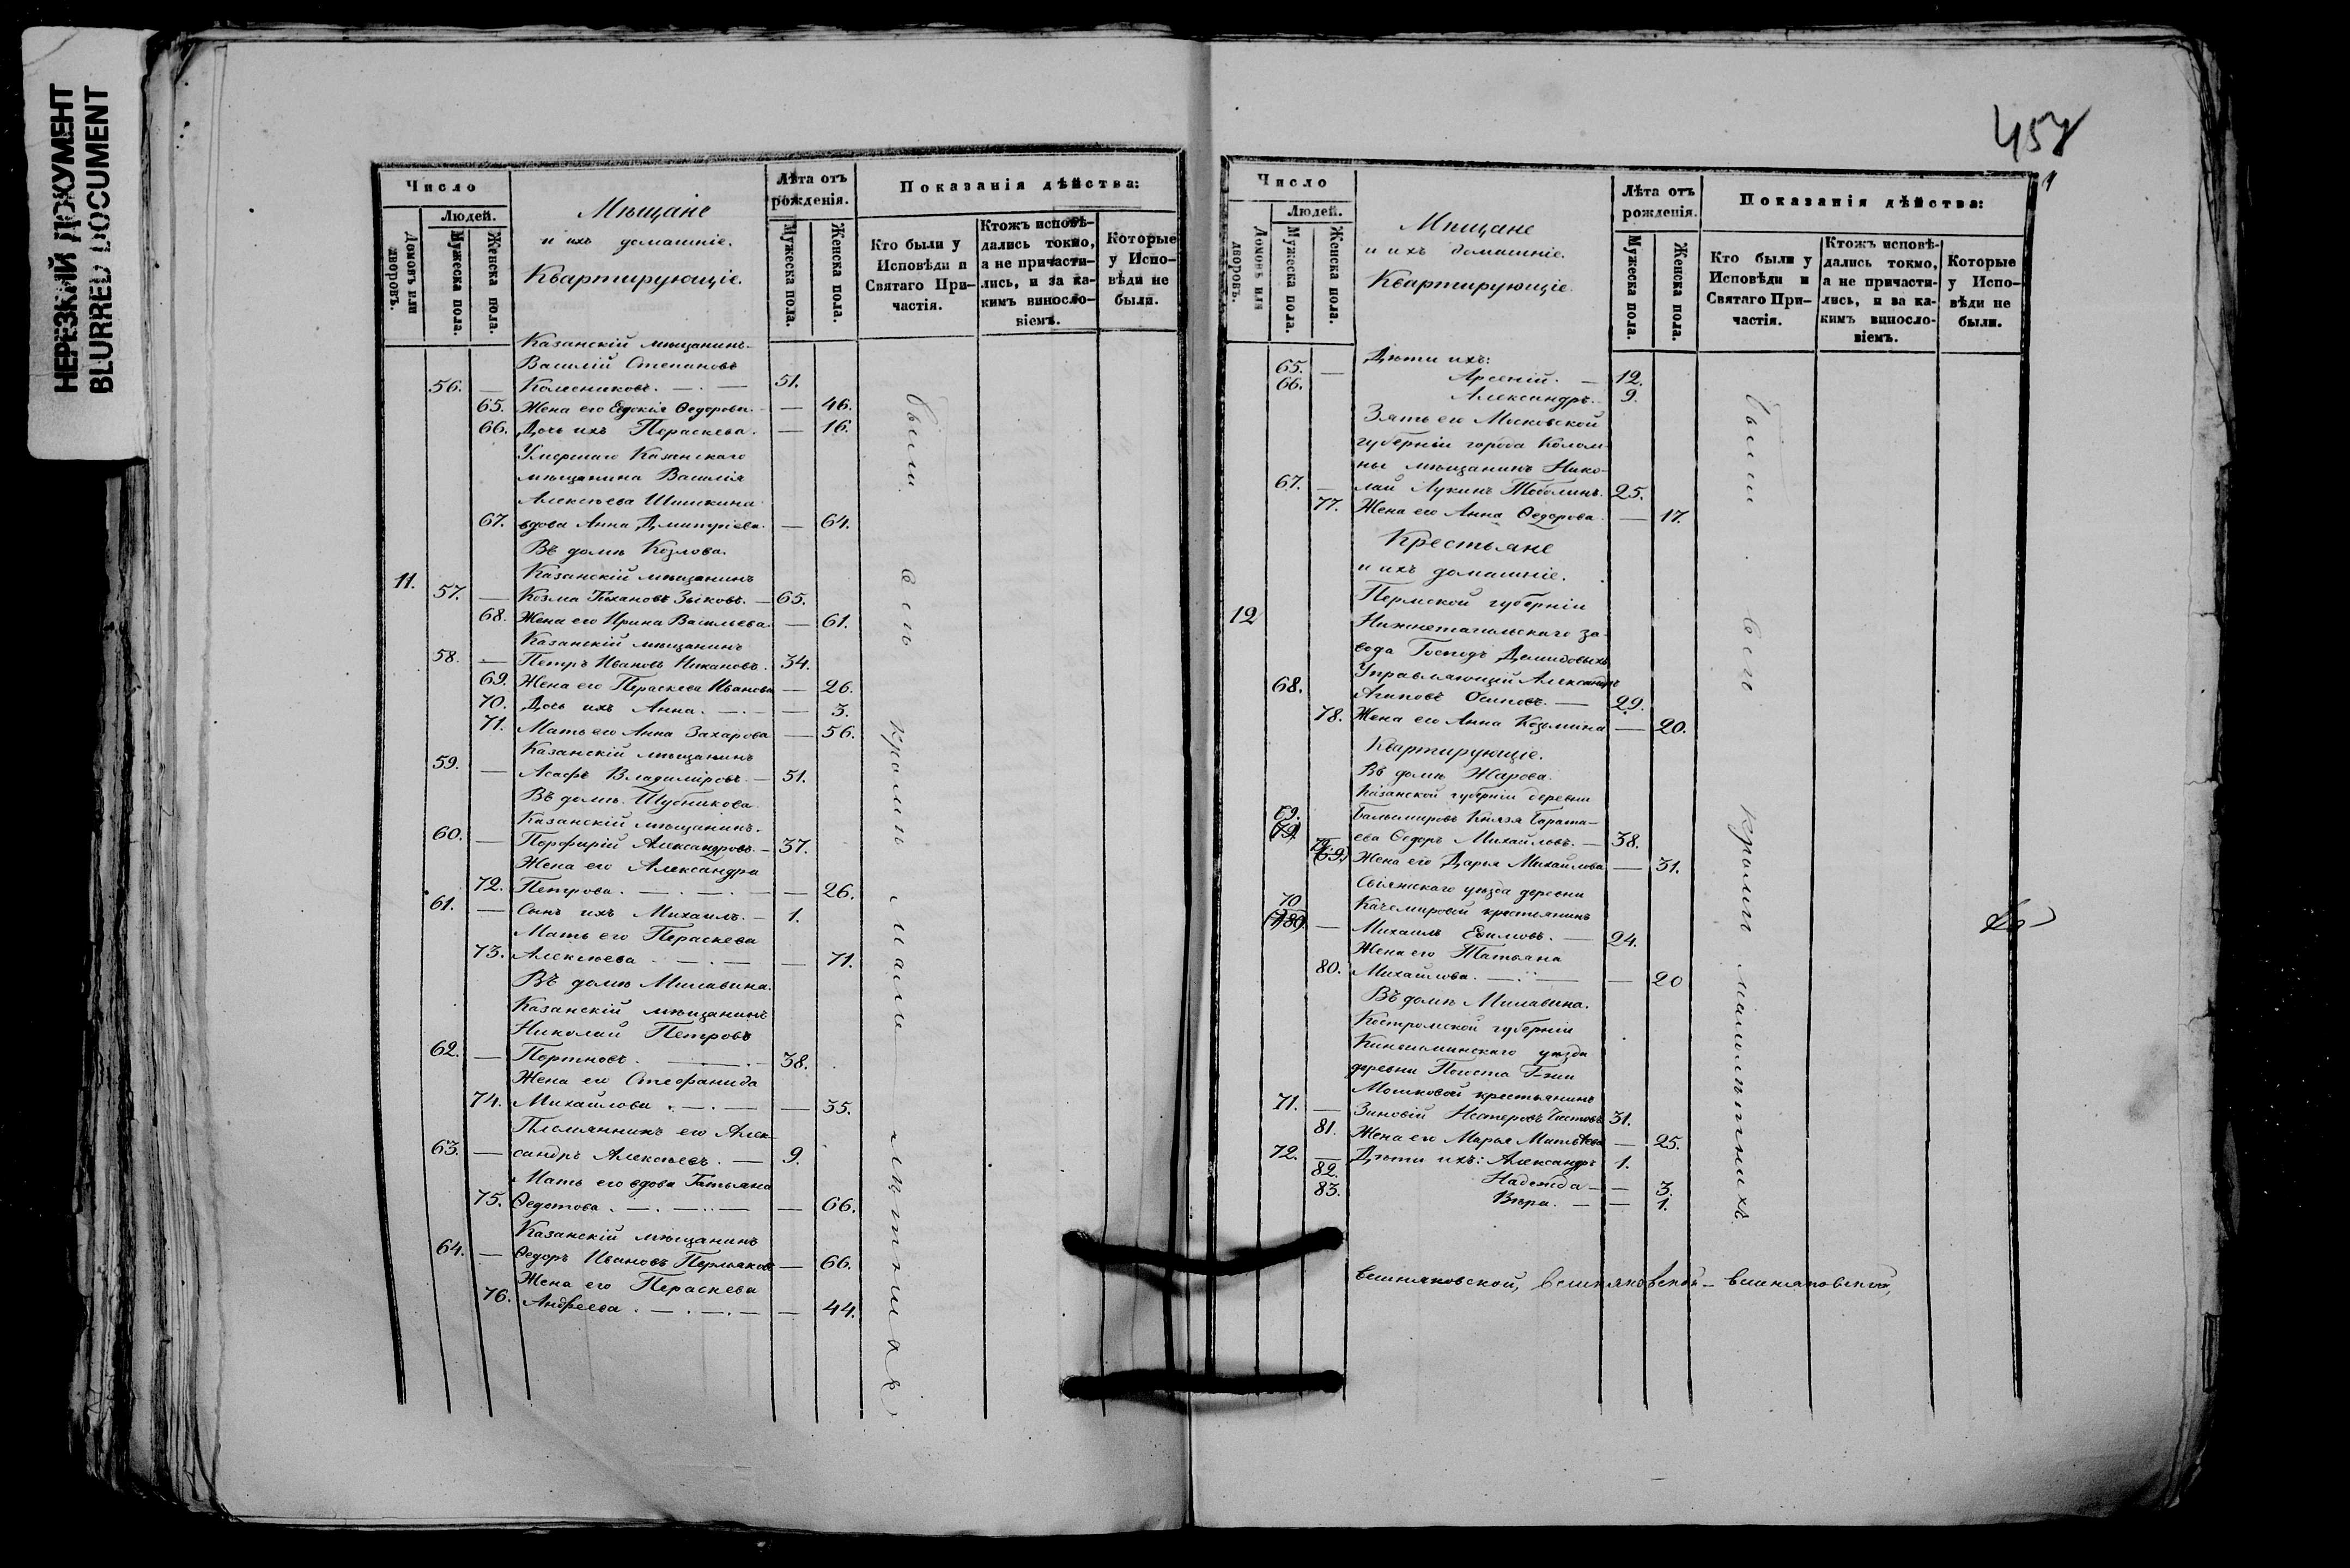 НЕРЕЗКИЙ ДОКУМЕНТ
BLURRED DOCUMENT
Число
Людей.
Домовъ или дворовъ.
Мужеска пола.
Женска пола.
Мѣщане
и ихъ домашніе.
Квартирующіе.
Лѣта отъ рожденія.
Мужеска пола.
Женска пола.
Показанія дѣйства:
Кто были у Исповѣди и Святаго При-частія.
Ктожъ исповѣ-дались токмо, а не причасти-лись, и за ка-кимъ винословіемъ.
Которые у Испо-вѣди не были.
Казанскій мѣщанинъ
Василій Степановъ
56. — Колесниковъ. — . — 51.
65. Жена его Евдокія Ѳедорова. — 46.
66. Дочь ихъ Параскева. — 16.
Умершаго Казанскаго
мѣщанина Василія
Алексѣева Шишкина
67. вдова Анна Дмитріева. — 64.
Въ домѣ Козлова.
11. Казанскій мѣщанинъ
57. — Козма Тихановъ Зыковъ. — 65.
68. Жена его Ирина Васильева. — 61.
Казанскій мѣщанинъ
58. — Петръ Ивановъ Никановъ. 34.
69. Жена его Параскева Иванова — 26.
70. Дочь ихъ Анна. — . — — 3.
71. Мать его Анна Захарова — 56.
Казанскій мѣщанинъ
59. — Асафъ Владиміровъ. — 51.
Въ домѣ Шубникова.
Казанскій мѣщанинъ.
60. — Порфирій Александровъ. — 37.
Жена его Александра
72. Петрова. — . — . — — 26.
61. — Сынъ ихъ Михаилъ. — 1.
Мать его Параскева
73. Алексѣева — . — — 71.
Въ домѣ Милавина.
Казанскій мѣщанинъ
Николай Петровъ
62. — Портновъ. — . 38.
Жена его Стефанида
74. Михайлова. — . — — 35.
Племянникъ его Алек-
63. — сандръ Алексѣевъ. — 9.
Мать его вдова Татьяна
75. Ѳедотова. — . — . . — — 66.
Казанскій мѣщанинъ
64. — Ѳедоръ Ивановъ Пермяковъ — 66.
Жена его Параскева
76. Андреева. — . — . — — 44.
были. всѣ кромѣ малолѣтнихъ
457
Число
Людей.
Домовъ или дворовъ.
Мужеска пола.
Женска пола.
Мѣщане
и ихъ домашніе.
Квартирующіе.
Лѣта отъ рожденія.
Мужеска пола.
Женска пола.
Показанія дѣйства:
Кто были у Исповѣди и Святаго При-частія.
Ктожъ исповѣ-дались токмо, а не причасти-лись, и за ка-кимъ винословіемъ.
Которые у Испо-вѣди не были.
Дѣти ихъ:
65. — Арсеній. — 12.
66. Александръ. 9.
Зять его Московской
губерніи города Колом-
ны мѣщанинъ Нико-
67. — лай Лукинъ 25.
77. Жена его Анна Ѳедорова. — 17.
Крестьяне
и ихъ домашніе.
Пермской губерніи
12 Нижнетагильскаго за-
вода Господъ Демидовыхъ
Управляющій Александръ
68. Осиповъ. — 29.
78. Жена его Анна Козмина — 20.
Квартирующіе.
Въ домѣ Жарова.
Казанской губерніи деревни
Князя Барата-
69. ева Ѳедоръ Михайловъ. — 38.
79. Жена его Дарья Михайлова — 31.
Свіяжскаго уѣзда деревни
крестьянинъ
70 — Михаилъ Евимовъ. — 24.
Жена его Татьяна
80. Михайлова. — . . — — 20
Въ домѣ Милавина.
Костромской губерніи
Кинешминскаго уѣзда
деревни Погоста Г-жи
Мошковой крестьянинъ
71. — Зиновій Нестеровъ Чистовъ 31.
81. Жена его Марья Матвѣева — 25.
72. — Дѣти ихъ: Александръ 1.
82. Надежда — — 3.
83. Вѣра. — — 1.
были. всѣ кромѣ малолѣтнихъ.